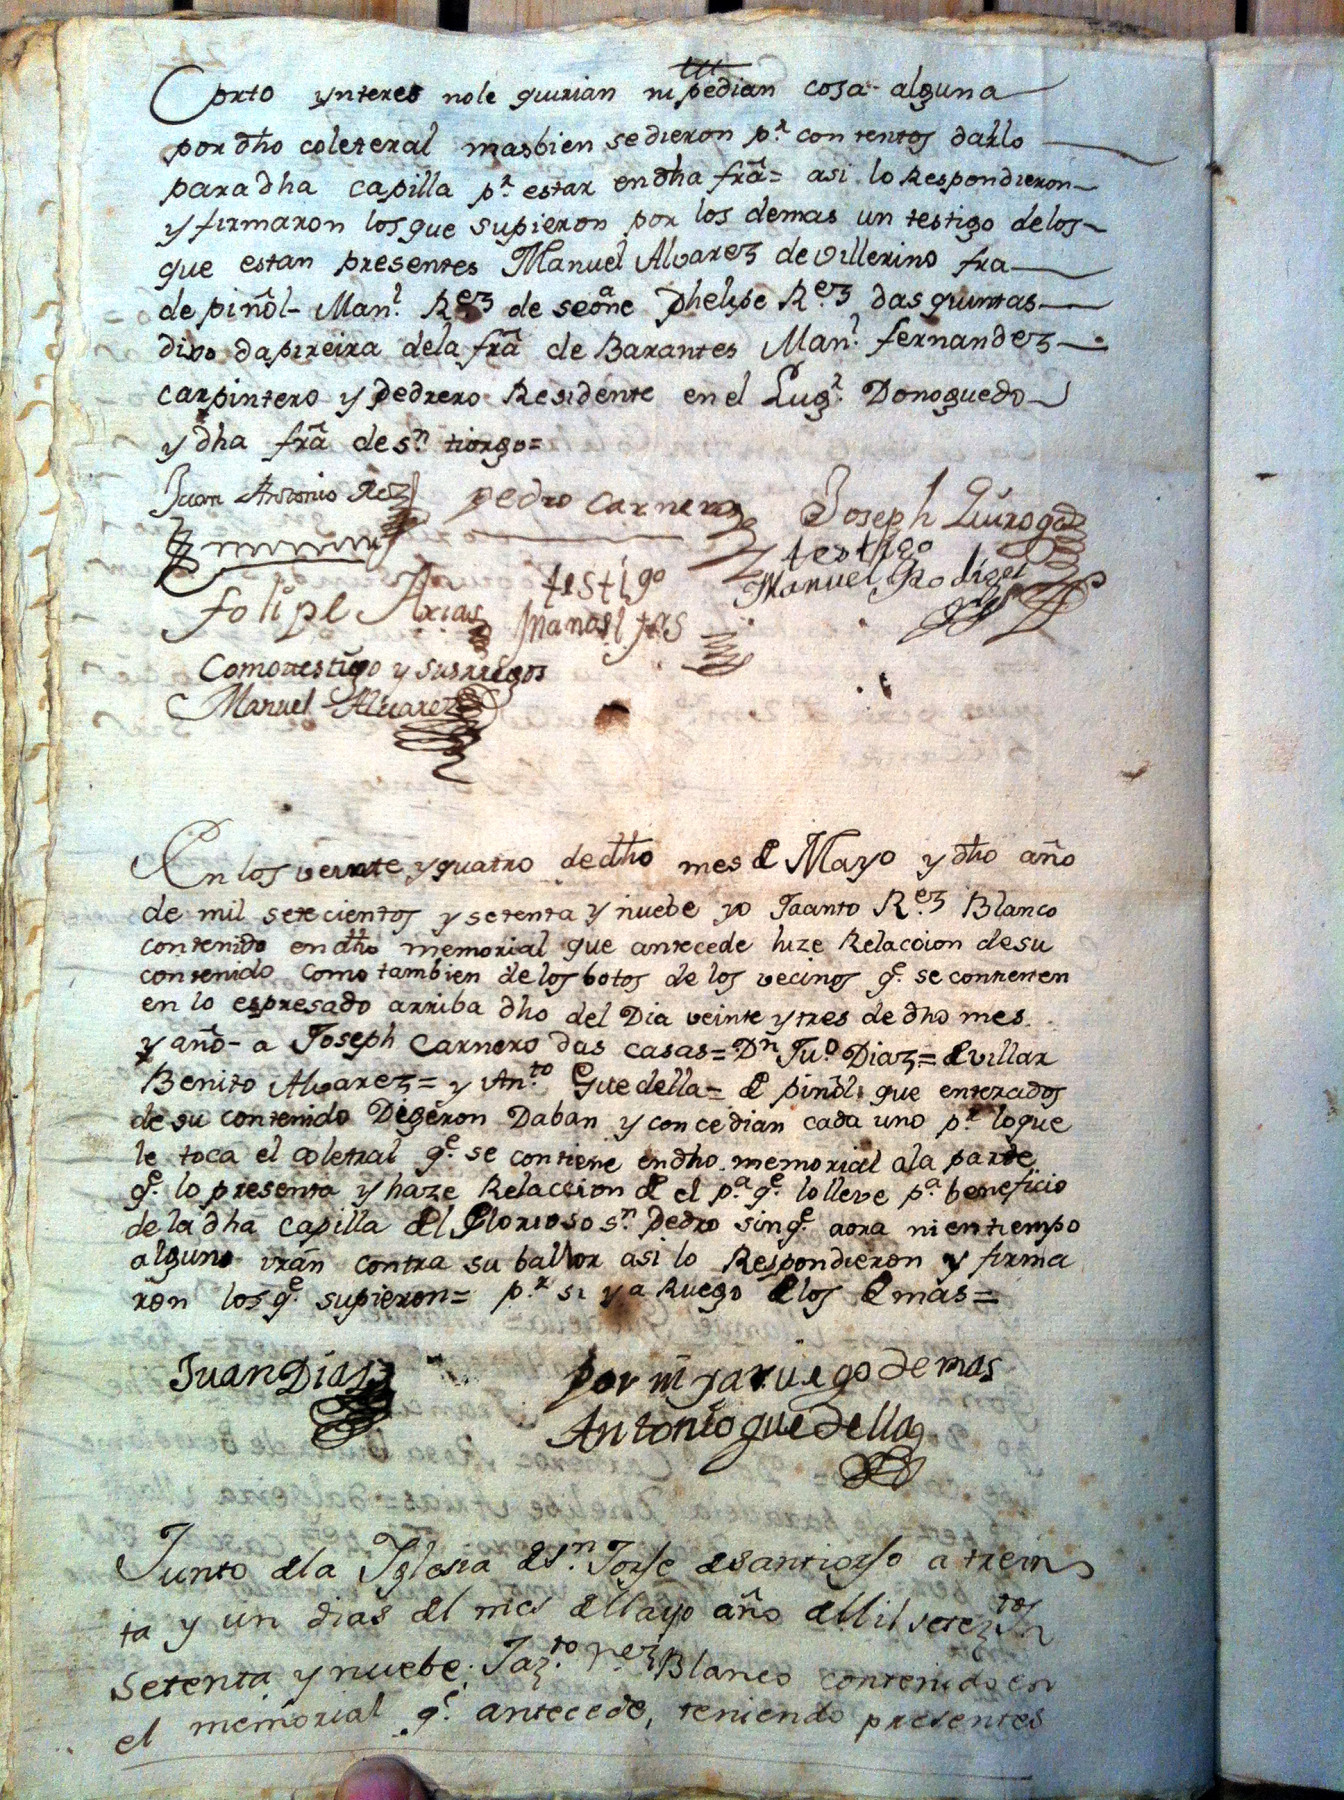 Corto ynteres nole quirian ni pedian cosa alguna
por dho coleteral masbien se dieron pr. contentos darlo
para dha capilla pr. estar en dha frã= asi lo Respondieron
y firmaron los que supieron por los demas un testigo delos
que estan presentes Manuel Alvarez de villerino fra
de piñol- Manl. Rez de seoñe Phelipe Rez das quintas
dixo dapireira dela frã de Barantes Manl. fernandez
carpintero y pedrero Residente en el Lugr. Donoguedo
y dha frã de sn. tiorgo=
Juan Antonio Rez pedro Carnero Joseph Quiroga
testigo
Manuel Rodigez
felipe Arias testigo
Como testigo y sus ruegos
Manuel Alvarez
En los veinte y quatro de dho mes de Mayo y dho año
de mil setecientos y setenta y nuebe yo Jacinto Rez Blanco
contenido en dho memorial que antecede hize Relaccion desu
contenido como tambien de los botos de los vecinos qe. se contienen
en lo espresado arriba dho del Dia veinte y tres de dho mes
y año- a Joseph Carnero das casas= Dn Juo. Diaz= de villar
Benito Alvarez= y Anto. Guedella= de piñol. que enterados
de su contenido Digeron Daban y concedian cada uno pr. loque
le toca el coletral qe. se contiene en dho memorial ala parde
qe. lo presenta y haze Relaccion de el pa. qe. lo lleve pa. beneficio
de la dha capilla del Glorioso sn. Pedro sin qe. aora ni en tiempo
alguno vrán contra su ballor asi lo Respondieron y firma
ron los qe. supieron= pr. si y a Ruego de los de mas=
Juan Diaz por mi y a ruego de mas
Antonio guedella
Junto dela Iglesia de Sn. Jorje de santiorjo a trein
ta y un dias del mes de Mayo año de Mil setez.tos
setenta y nuebe. Jazto. Rez Blanco contenido en
el memorial qe. antecede, teniendo presentes